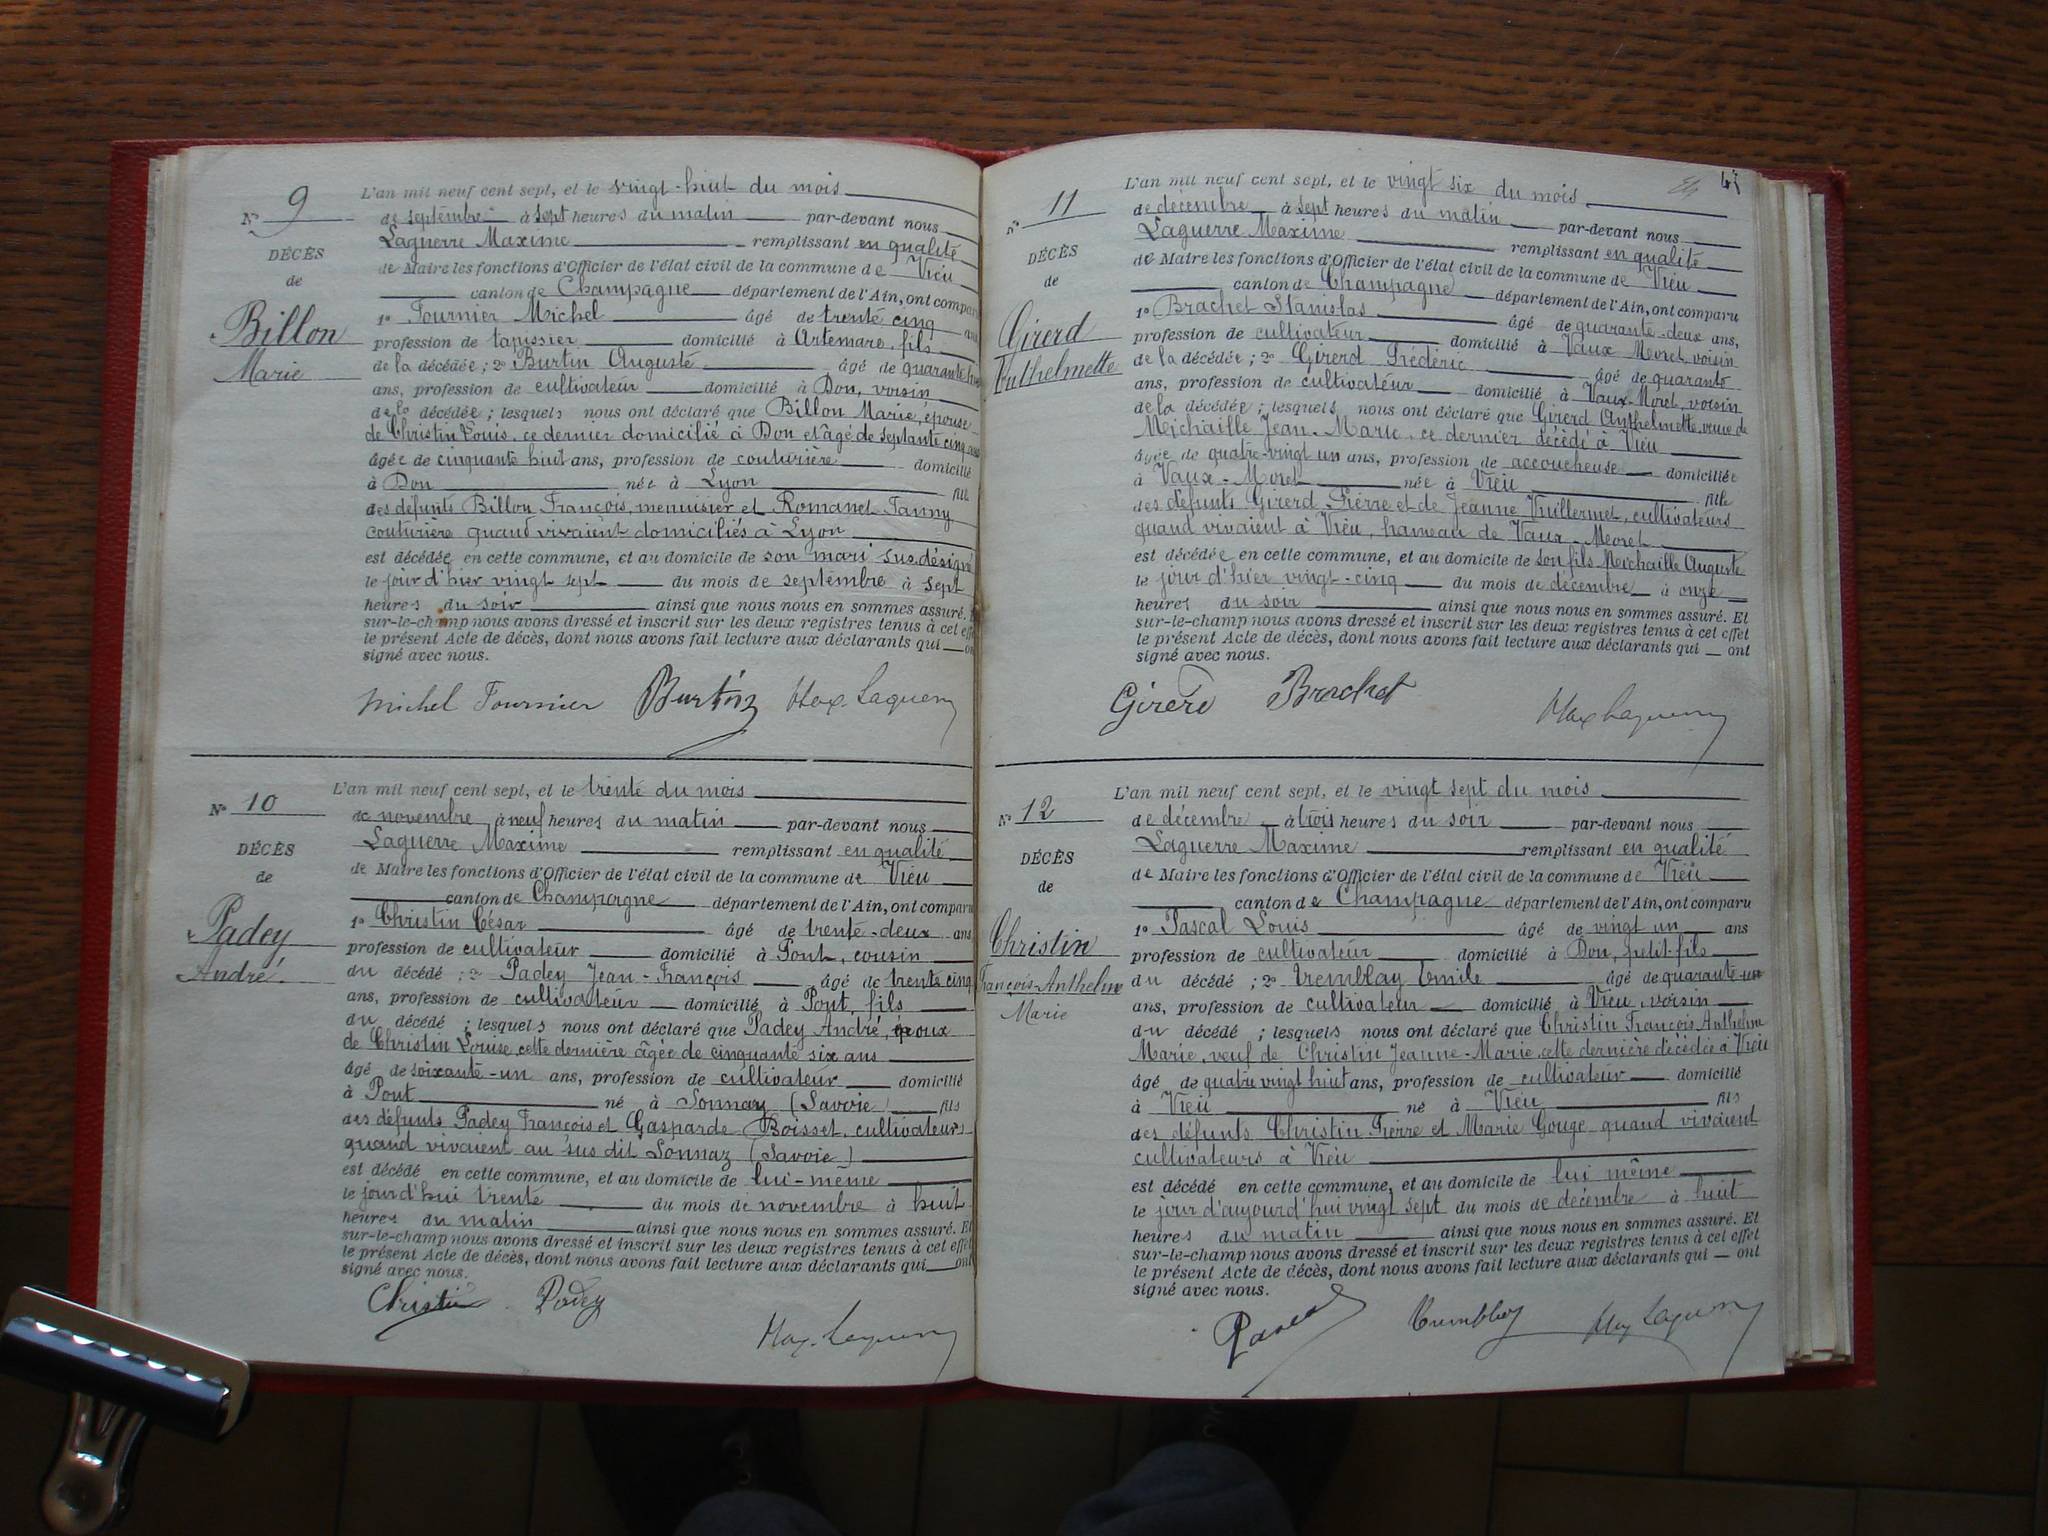 N° 9
DÉCÈS
de
Billon
Marie
L'an mil neuf cent sept, et le vingt-huit du mois
de septembre à sept heures du matin par-devant nous
Laguerre Maxime remplissant en qualité
de Maire les fonctions d'Officier de l'état civil de la commune de Vieu
canton de Champagne département de l'Ain, ont comparu
1° Fournier Michel âgé de trente cinq ans
profession de tapissier domicilié à Artemare, fils
de la décédée ; 2° Burtin Auguste âgé de quarante
ans, profession de cultivateur domicilié à Don, voisin
de la décédée ; lesquels nous ont déclaré que Billon Marie, épouse
de Christin Louis, ce dernier domicilié à Don et âgé de septante cinq ans
âgée de cinquante huit ans, profession de couturière domicilié
à Don née à Lyon fille
des défunts Billon François, menuisier et Romanet Fanny
couturière quand vivaient domiciliés à Lyon
est décédée en cette commune, et au domicile de son mari sus-désigné
le jour d'hier vingt sept du mois de septembre à sept
heures du soir ainsi que nous nous en sommes assuré. Et
sur-le-champ nous avons dressé et inscrit sur les deux registres tenus à cet effet
le présent Acte de décès, dont nous avons fait lecture aux déclarants qui ont
signé avec nous.
Michel Fournier Burtin Max. Laguerre
N° 10
DÉCÈS
de
Padey
André
L'an mil neuf cent sept, et le trente du mois
de novembre à neuf heures du matin par-devant nous
Laguerre Maxime remplissant en qualité
de Maire les fonctions d'Officier de l'état civil de la commune de Vieu
canton de Champagne département de l'Ain, ont comparu
1° Christin César âgé de trente-deux ans
profession de cultivateur domicilié à Pont, cousin
du décédé ; 2° Padey Jean-François âgé de trente cinq
ans, profession de cultivateur domicilié à Pont, fils
du décédé ; lesquels nous ont déclaré que Padey André, époux
de Christin Louise, cette dernière âgée de cinquante six ans
âgé de soixante-un ans, profession de cultivateur domicilié
à Pont né à Sonnaz (Savoie) fils
des défunts Padey François et Gasparde Boisset, cultivateurs
quand vivaient au sus dit Sonnaz (Savoie)
est décédé en cette commune, et au domicile de lui-même
le jour d'hui trente du mois de novembre à huit
heures du matin ainsi que nous nous en sommes assuré. Et
sur-le-champ nous avons dressé et inscrit sur les deux registres tenus à cet effet
le présent Acte de décès, dont nous avons fait lecture aux déclarants qui ont
signé avec nous.
Christin Padey
Max. Laguerre
47
N° 11
DÉCÈS
de
Girerd
Anthelmette
L'an mil neuf cent sept, et le vingt six du mois
de décembre à sept heures du matin par-devant nous
Laguerre Maxime remplissant en qualité
de Maire les fonctions d'Officier de l'état civil de la commune de Vieu
canton de Champagne département de l'Ain, ont comparu
1° Brachet Stanislas âgé de quarante-deux ans,
profession de cultivateur domicilié à Vaux Moret, voisin
de la décédée ; 2° Girerd Frédéric âgé de quarante
ans, profession de cultivateur domicilié à Vaux-Moret, voisin
de la décédée ; lesquels nous ont déclaré que Girerd Anthelmette, veuve de
Michaille Jean-Marie, ce dernier décédé à Vieu
âgée de quatre-vingt un ans, profession de accoucheuse domiciliée
à Vaux-Moret née à Vieu fille
des défunts Girerd Pierre et de Jeanne Vuillermet, cultivateurs
quand vivaient à Vieu, hameau de Vaux-Moret
est décédée en cette commune, et au domicile de son fils Michaille Auguste
le jour d'hier vingt-cinq du mois de décembre à onze
heures du soir ainsi que nous nous en sommes assuré. Et
sur-le-champ nous avons dressé et inscrit sur les deux registres tenus à cet effet
le présent Acte de décès, dont nous avons fait lecture aux déclarants qui ont
signé avec nous.
Girerd Brachet Max Laguerre
N° 12
DÉCÈS
de
Christin
François-Anthelme
Marie
L'an mil neuf cent sept, et le vingt sept du mois
de décembre à trois heures du soir par-devant nous
Laguerre Maxime remplissant en qualité
de Maire les fonctions d'Officier de l'état civil de la commune de Vieu
canton de Champagne département de l'Ain, ont comparu
1° Pascal Louis âgé de vingt un ans
profession de cultivateur domicilié à Don, petit-fils
du décédé ; 2° Tremblay Emile âgé de quarante-un
ans, profession de cultivateur domicilié à Vieu, voisin
du décédé ; lesquels nous ont déclaré que Christin François Anthelme
Marie, veuf de Christin Jeanne-Marie, cette dernière décédée à Vieu
âgé de quatre vingt huit ans, profession de cultivateur domicilié
à Vieu né à Vieu fils
des défunts Christin Pierre et Marie Gouge quand vivaient
cultivateurs à Vieu
est décédé en cette commune, et au domicile de lui même
le jour d'aujourd'hui vingt sept du mois de décembre à huit
heures du matin ainsi que nous nous en sommes assuré. Et
sur-le-champ nous avons dressé et inscrit sur les deux registres tenus à cet effet
le présent Acte de décès, dont nous avons fait lecture aux déclarants qui ont
signé avec nous.
Pascal Tremblay Max Laguerre